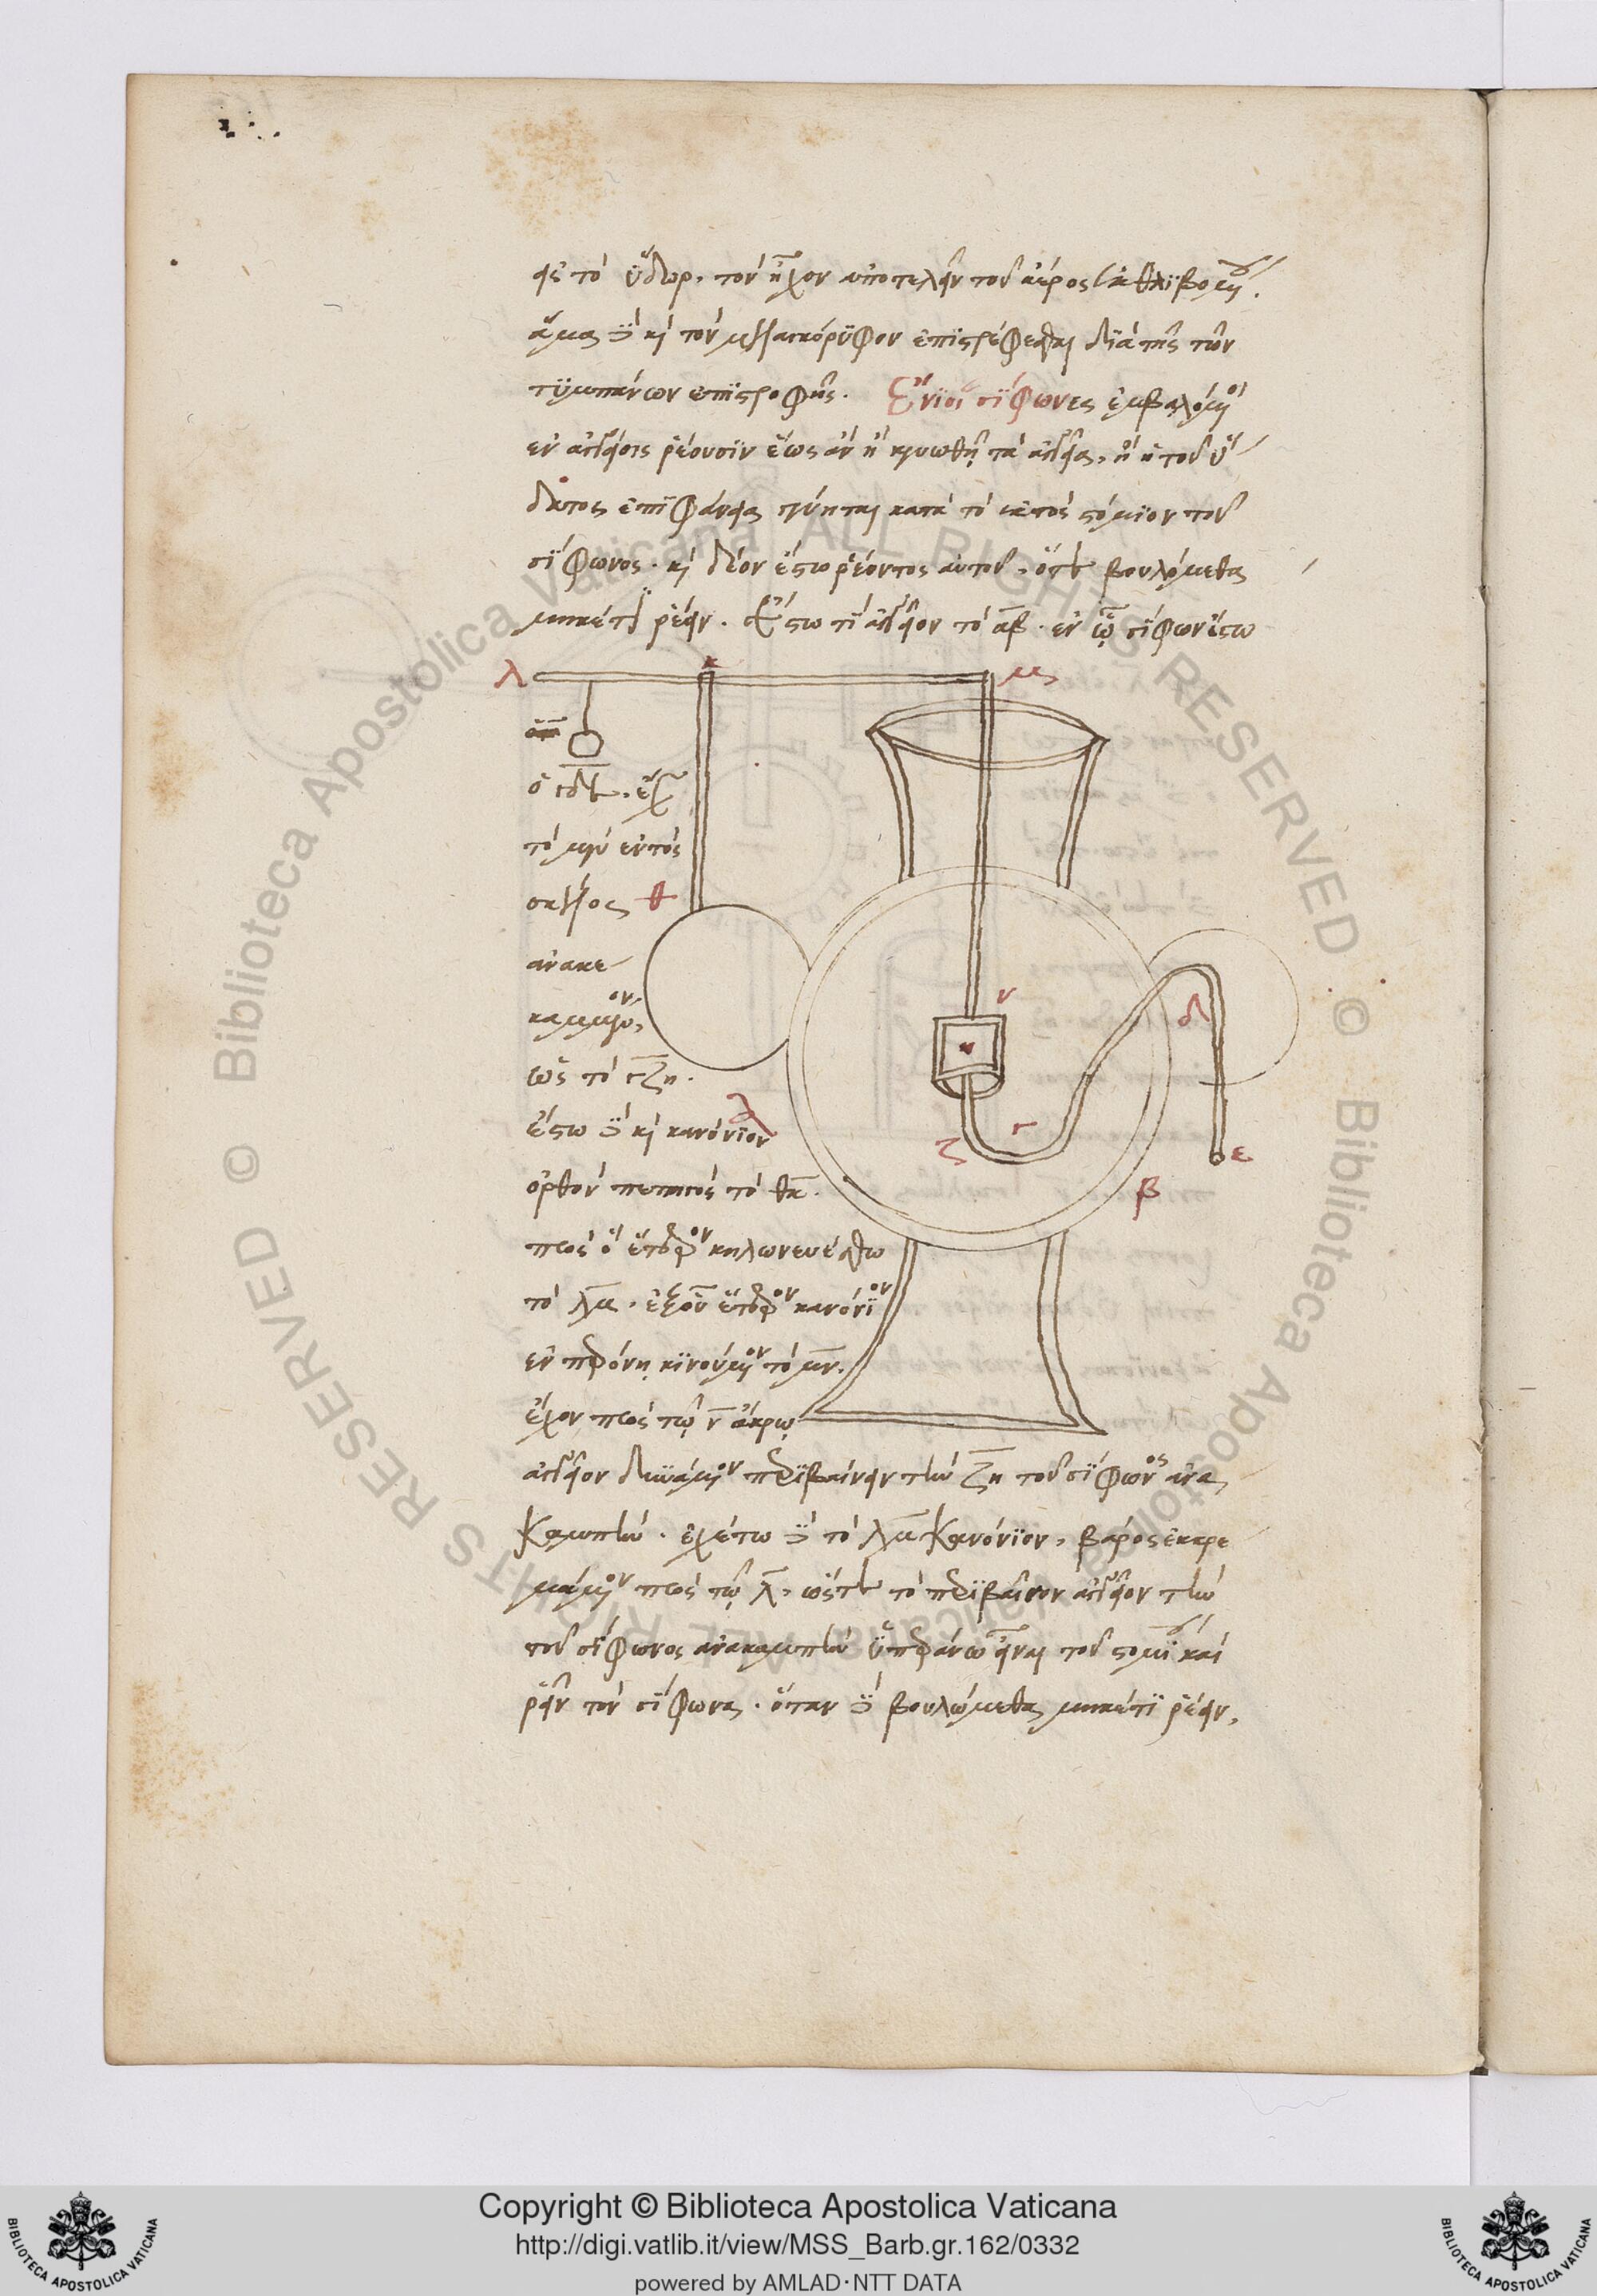 εἰς τὸ ὕδωρ, τὸν ἦχον ἀποτελεῖν τοῦ ἀέρος ἐκθλιβομένου.
ἅμα δὲ καὶ τὸν μελαγκόρυφον ἐπιστρέφεσθαι διὰ τῆς τῶν
τυμπάνων ἐπιστροφῆς. Ἔνιοι σίφωνες ἐμβαλόμενοι
ἐν ἀγγείοις ῥέουσιν ἕως ἂν ἢ κενωθῇ τὰ ἀγγεῖα, ἢ ἡ τοῦ ὕ
δατος ἐπιφάνεια γένηται κατὰ τὸ ἐκτὸς στόμιον τοῦ
σίφωνος. καὶ δέον ἔστω ῥέοντος αὐτοῦ, ὅτε βουλόμεθα
μηκέτι ῥέειν. Ἔστω τι ἀγγεῖον τὸ αβ. ἐν ᾧ σίφων ἔστω
λ κ μ
ὁ γδε. ἔχων
τὸ μὲν ἐντὸς
σκέλος θ
ἀνακε
καμμένον, ν
δ
ὡς τὸ γζη.
ἔστω δὲ καὶ κανόνιον
ζ γ ε
ὀρθὸν πεπηγὸς τὸ θκ. β
πρὸς ὃ ἕτερον κηλωνευέσθω
τὸ λμ. ἕτερον κανόνιον
ἐν περόνῃ κινούμενον τὸ μν.
ἔχον πρὸς τῷ ν ἄκρῳ
ἀγγεῖον δυνάμενον περιβαίνειν τὴν ζη τοῦ σίφωνος ἀνα
καμπήν. ἐχέτω δὲ τὸ λμ κανόνιον, βάρος ἐκκρε
μάμενον πρὸς τῷ λ, ὥστε τὸ περιβαῖνον ἀγγεῖον τὴν
τοῦ σίφωνος ἀνακαμπὴν ὑπεράνω εἶναι τοῦ στομίου καὶ
ῥεῖν τὸν σίφωνα. ὅταν δὲ βουλώμεθα μηκέτι ῥέειν,
Biblioteca Apostolica Vaticana ALL RIGHTS RESERVED © Biblioteca Apostolica Vaticana ALL RIGHTS RESERVED ©
Copyright © Biblioteca Apostolica Vaticana
http://digi.vatlib.it/view/MSS_Barb.gr.162/0332
powered by AMLAD·NTT DATA
BIBLIOTECA APOSTOLICA VATICANA
BIBLIOTECA APOSTOLICA VATICANA